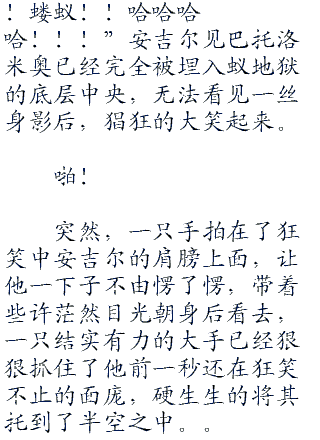 ！蝼蚁！！哈哈哈
哈！！！”安吉尔见巴托洛
米奥已经完全被埋入蚁地狱
的底层中央，无法看见一丝
身影后，猖狂的大笑起来。
啪！
突然，一只手拍在了狂
笑中安吉尔的肩膀上面，让
他一下子不由愣了愣，带着
些许茫然目光朝身后看去，
一只结实有力的大手已经狠
狠抓住了他前一秒还在狂笑
不止的面庞，硬生生的将其
托到了半空之中。。